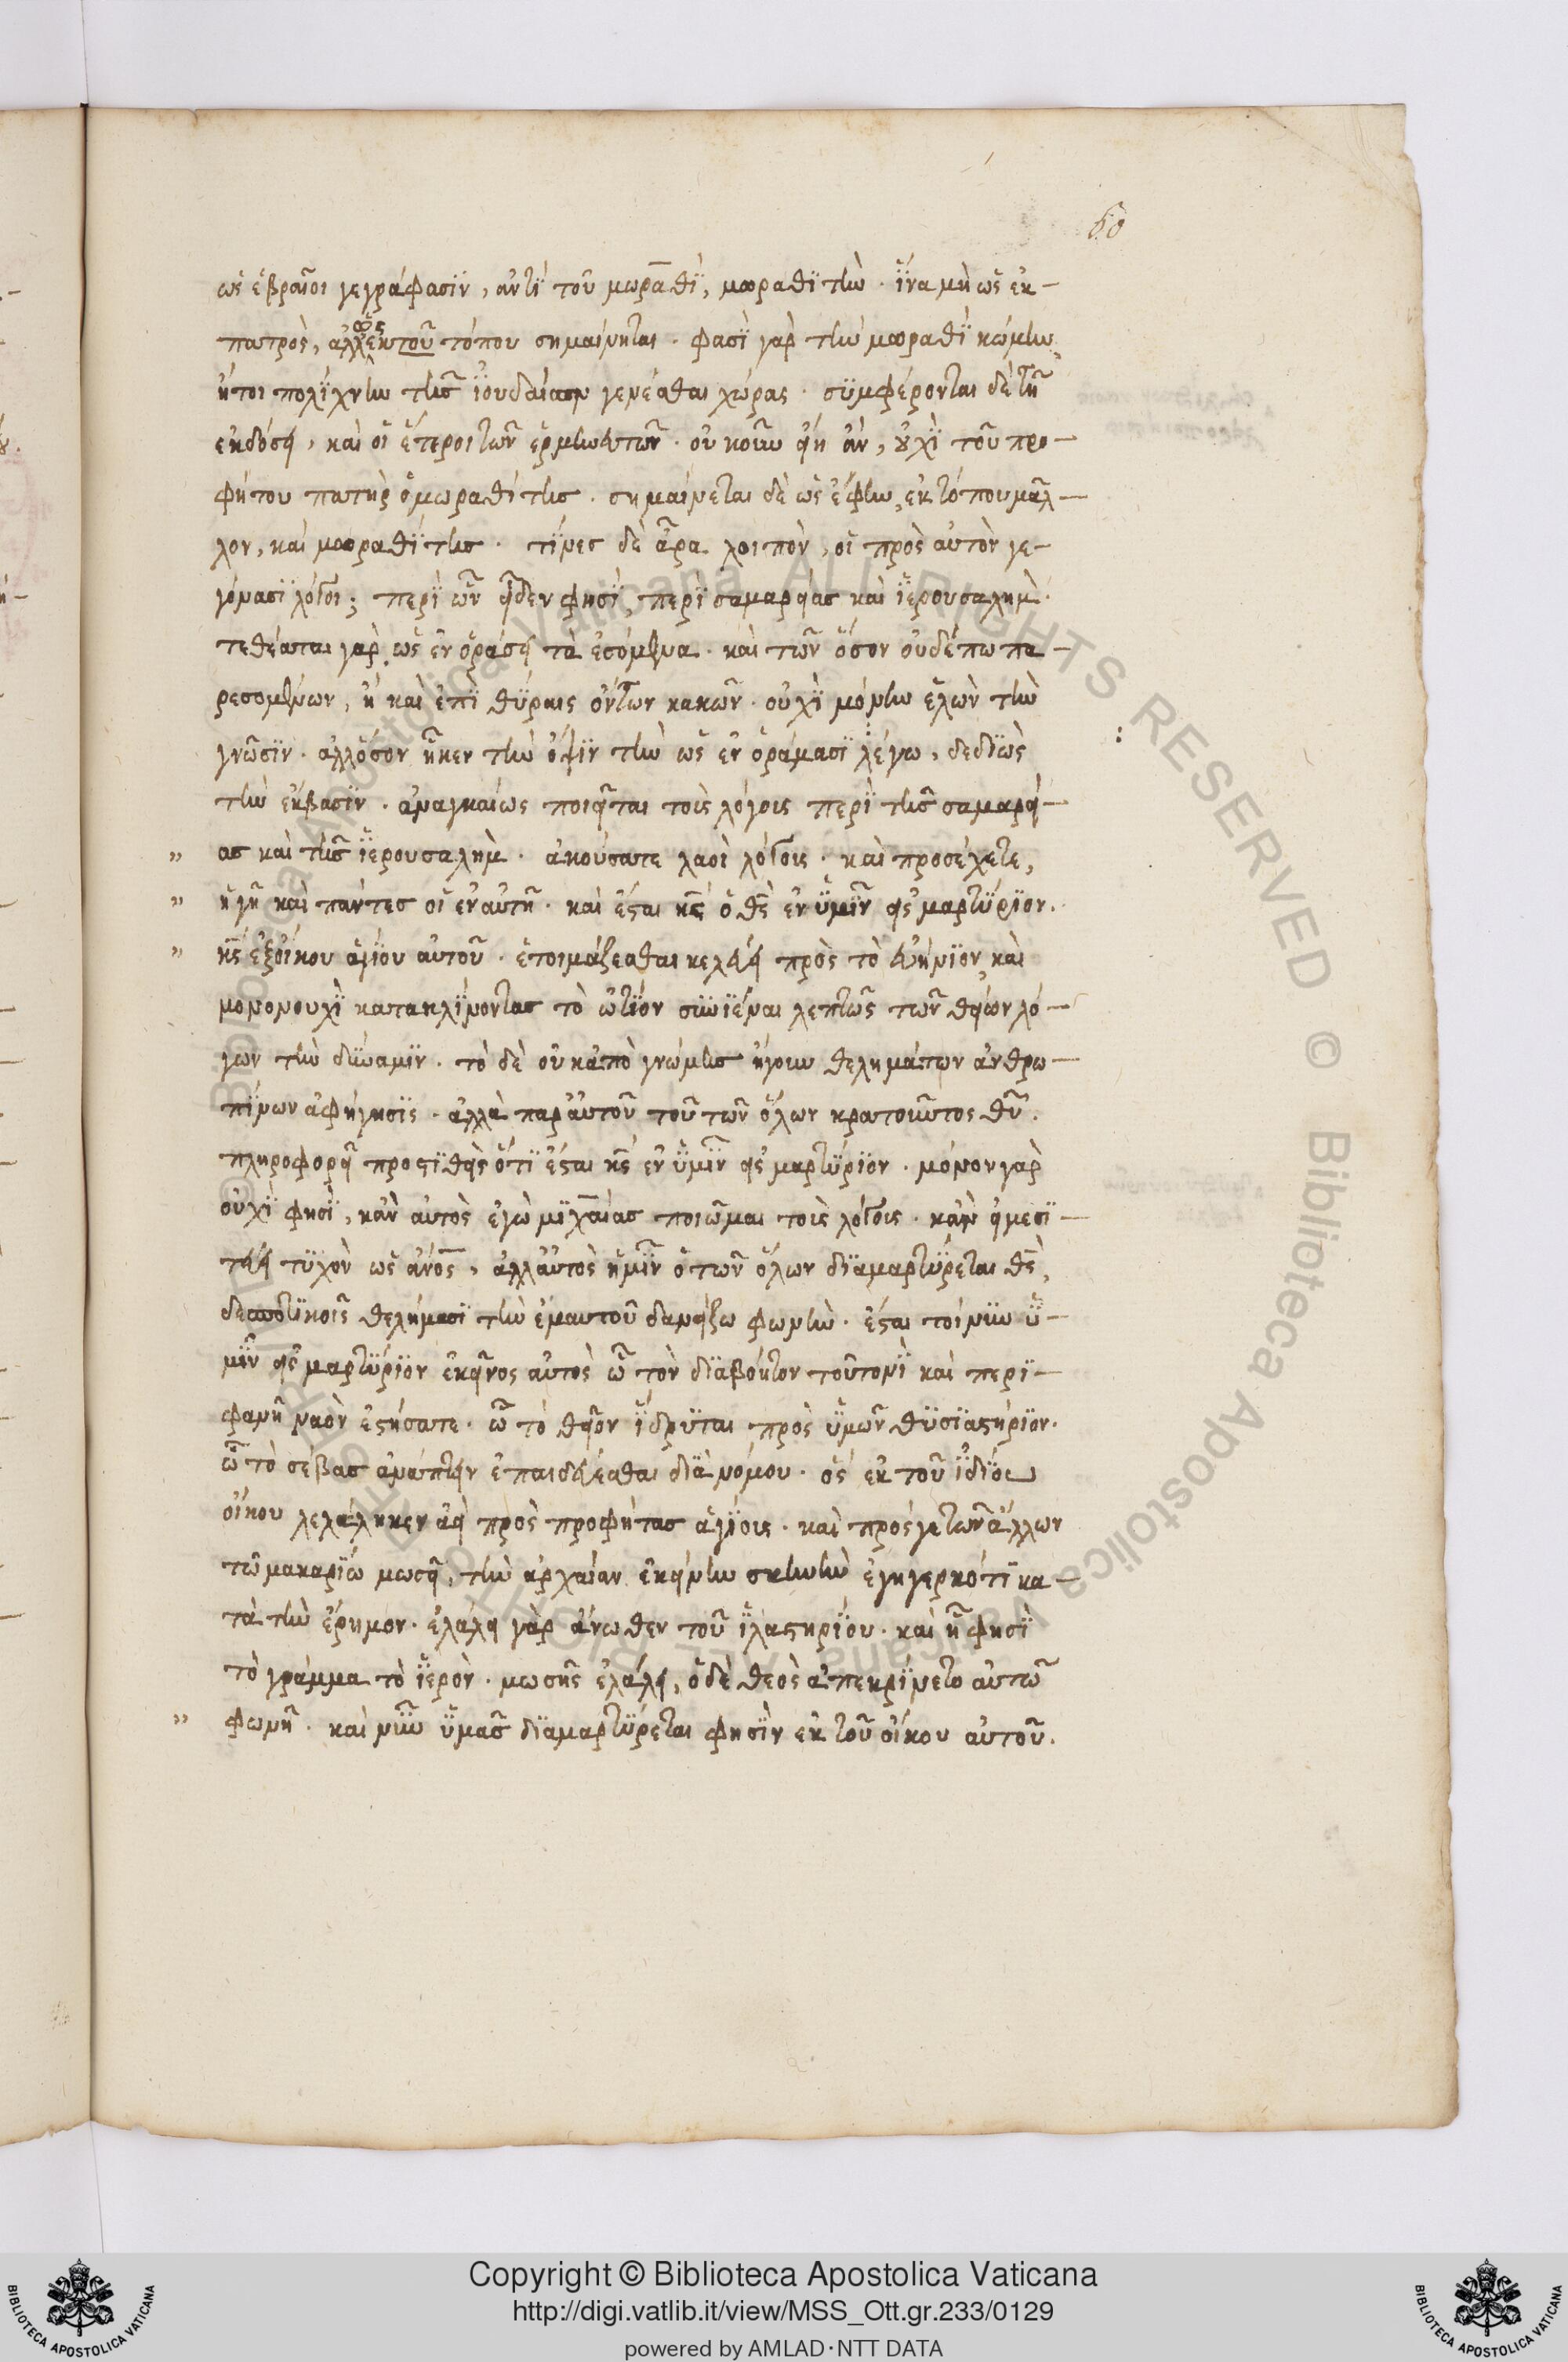 60
ὡς ἑβραῖοι γεγράφασϊν, ἀντῒ τοῦ μωραθῒ, μωραθϊτην. ἵνα μὴ ὡς ἐκ-
πατρὸς, ἀλλ' ὡς ἐκ τοῦ τόπου σημαίνηται. φασῒ γὰρ τὴν μωραθῒ κώμην,
ἤτοι πολΐχνην τῆς ϊουδαίων γενέσθαι χώρας. συμφέρονται δὲ τῇ
ἐκδόσει, καὶ οἱ ἕτεροι τῶν ἑρμηνευτῶν. οὐκοῦν εἴη ἂν, οὐχῒ τοῦ προ-
φήτου πατὴρ ὁ μωραθίτης. σημαίνεται δὲ ὡς ἔφην, ἐκ τόπου μᾶλ-
λον, καὶ μωραθΐτης. τΐνες δὲ ἆρα λοιπὸν, οἱ πρὸς αὐτὸν γε-
γόνασϊ λόγοι; περῒ ὧν εἶδεν φησῒ, περῒ σαμαρείας καὶ ϊερουσαλημ.
τεθέαται γὰρ ὡς ἐν ὁράσει τὰ ἐσόμενα. καὶ τῶν ὅσον οὐδέπω πα-
ρεσομένων, ἢ καὶ ἐπῒ θύραις ὄντων κακῶν. οὐχῒ μόνην ἑλὼν τὴν
γνῶσϊν. ἀλλ' ὅσον ἧκεν τὴν ὄψϊν τὴν ὡς ἐν ὁράμασϊ λέγω, δεδϊὼς
τὴν ἔκβασϊν. ἀναγκαίως ποιεῖται τοὺς λόγους περῒ τῆς σαμαρεί-
" ας καὶ τῆς ϊερουσαλὴμ. ἀκούσατε λαοὶ λόγους. καὶ προσέχετε,
" ἡ γῆ καὶ πάντες οἱ ἐν αὐτῇ. καὶ ἔσται κς ὁ θς ἐν ὑμῖν εἰς μαρτύρϊον.
" κς ἐξ οἴκου ἁγΐου αὐτοῦ. ἑτοιμάζεσθαι κελεύει πρὸς τὸ εὐήνϊον, καὶ
μονονουχῒ κατακλΐνοντας τὸ ὠτΐον συνϊέναι λεπτῶς τῶν θείων λό-
γων τὴν δύναμϊν. τὸ δὲ οὐκ ἀπὸ γνώμης ἤγουν θελημάτων ἀνθρω-
πΐνων ἀφήγησϊς. ἀλλὰ παρ' αὐτοῦ τοῦ τῶν ὅλων κρατοῦντος θῦ.
πληροφορεῖ προστϊθεὶς ὅτϊ ἔσται κς ἐν ὑμῖν εἰς μαρτύρϊον. μόνον γὰρ
οὐχῒ φησῒ, κἂν αὐτὸς ἐγὼ μϊχαίας ποιῶμαι τοὺς λόγους. κἂν εἰ μεσϊ-
τεύει τϋχὸν ὡς ἄνος, ἀλλ' αὐτὸς ἡμῖν ὁ τῶν ὅλων δϊαμαρτύρεται θς,
δεσποτϊκοῖς θελήμασϊ τὴν ἐμαυτοῦ δανείζω φωνὴν. ἔσται τοίνυν ὑ-
μῖν εἰς μαρτύρϊον ἐκεῖνος αὐτὸς ὧ τὸν δϊαβόητον τουτονῒ καὶ περϊ-
φανῆ ναὸν ἐστήσατε. ὧ τὸ θεῖον ἵδρϋται πρὸς ὑμῶν θϋσϊαστήρϊον.
ὧ τὸ σέβας ἀνάπτειν ἐπαιδεύεσθαι δϊὰ νόμου. ὃς ἐκ τοῦ ϊδΐου
οἴκου λελάληκεν ἀεὶ πρὸς προφήτας ἁγΐους. καὶ πρός γε τῶν ἄλλων
τῶ μακαρΐω μωσεῖ, τὴν ἀρχαίαν ἐκείνην σκηνὴν ἐγηγερκότϊ κα-
τὰ τὴν ἔρημον. ἐλάλει γὰρ ἄνωθεν τοῦ ϊλαστηρΐου. καὶ ἧ φησῒ
τὸ γράμμα τὸ ϊερὸν. μωσῆς ἐλάλει, ὁ δὲ θεὸς ἀπεκρΐνετο αὐτῶ
" φωνῆ. καὶ νῦν ὑμᾶς δϊαμαρτύρεται φησῒν ἐκ τοῦ οἴκου αὐτοῦ.
Copyright © Biblioteca Apostolica Vaticana
http://digi.vatlib.it/view/MSS_Ott.gr.233/0129
powered by AMLAD·NTT DATA